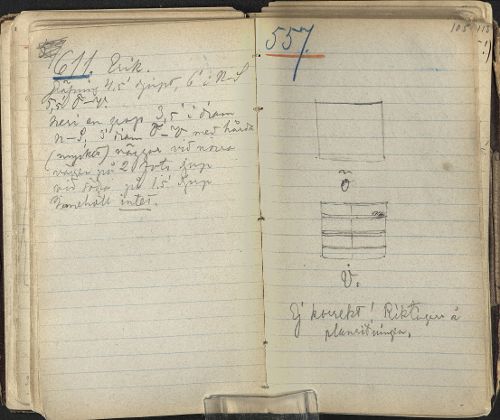 611. Erik.
4.5' djupt, 6' i N-S
5,5 Ö-V.
heri en grop 3,5' i diam
N-S, 3' diam Ö-V med hårda
(mycket) väggar vid norra
på 2 fots djup
vid södra på 1.5' djup
Innehåll intet.
557.
105 115
Ö
V.
Ej korrekt! Riktagen å
planritningen.